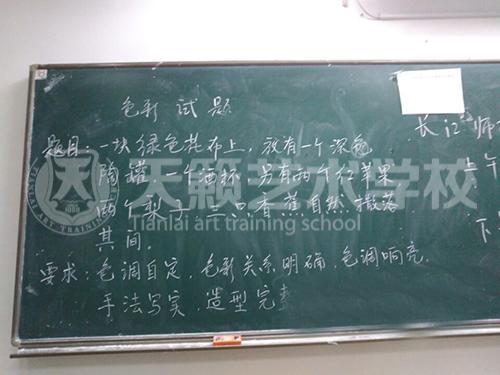 色彩试题
题目:一块绿色花布上,放有一个深色
陶罐 一个酒杯 另有两个红苹果
两个梨子 三只香蕉自然摆落
其间.
要求:色调自定,色彩关系明确,色调响亮.
手法写实,造型完整
长江师
上午
下
天籁艺术学校
Tianlai art training school